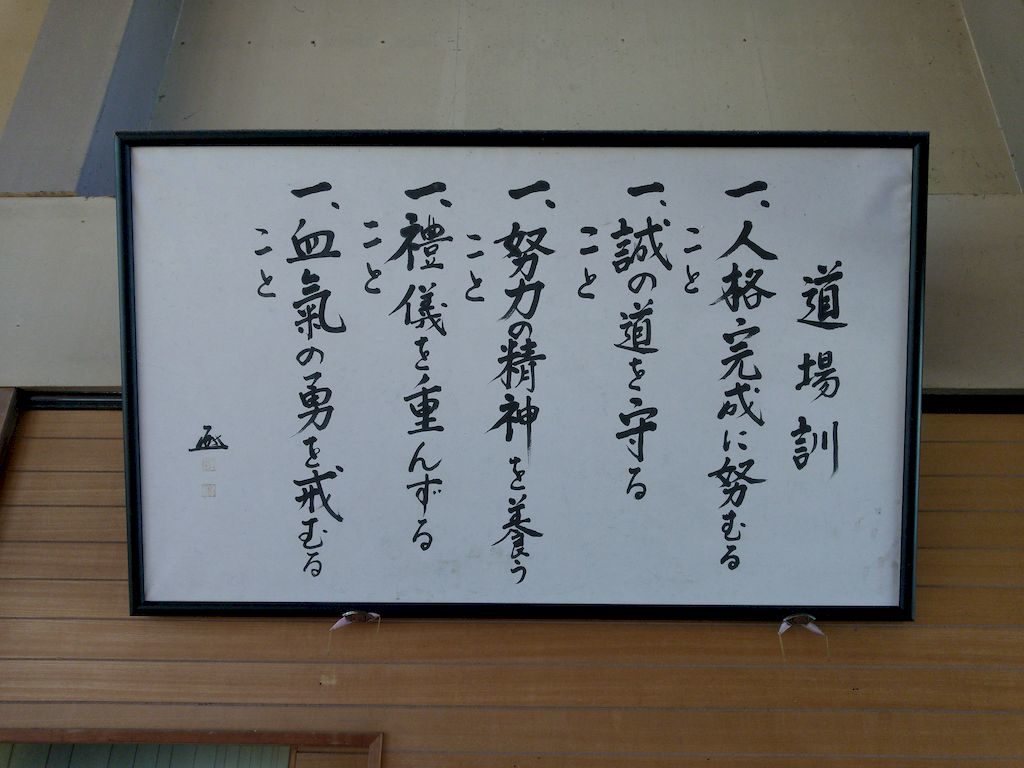 道場訓
一、人格完成に努むる
こと
一、誠の道を守る
こと
一、努力の精神を養う
こと
一、禮儀を重んずる
こと
一、血氣の勇を戒むる
こと